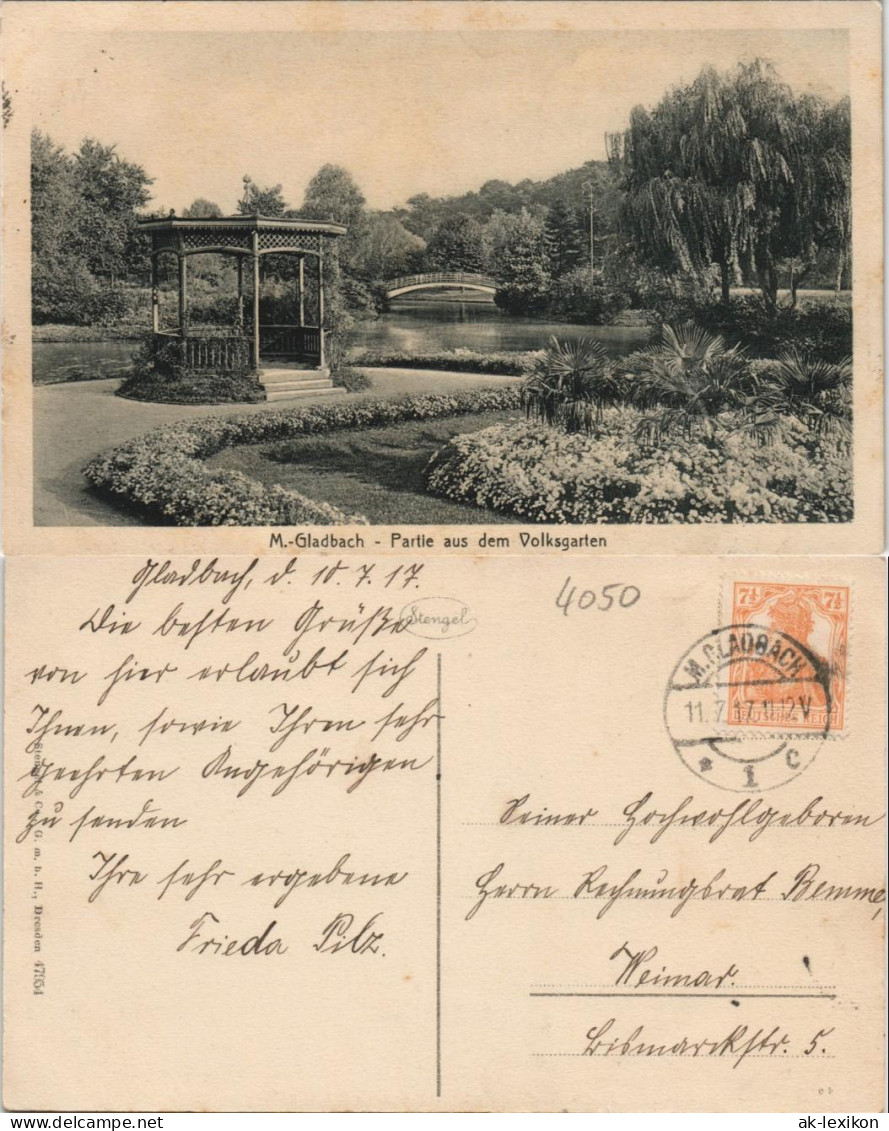 M.-Gladbach - Partie aus dem Volksgarten
Gladbach, d. 10.7.17.
Die besten Grüße
von hier erlaubt sich
Ihnen, sowie Ihren sehr
geehrten Angehörigen
zu senden
Ihre sehr ergebene
Frieda Pilz.
Stengel
Stengel & Co., G. m. b. H., Dresden 47954
4050
7½ 7½
DEUTSCHES REICH
M. GLADBACH
11.7.17.11-12V
* 1 c
Seiner Hochwohlgeboren
Herrn Rechnungsrat Bemme,
Weimar.
Bismarckstr. 5.
ak-lexikon